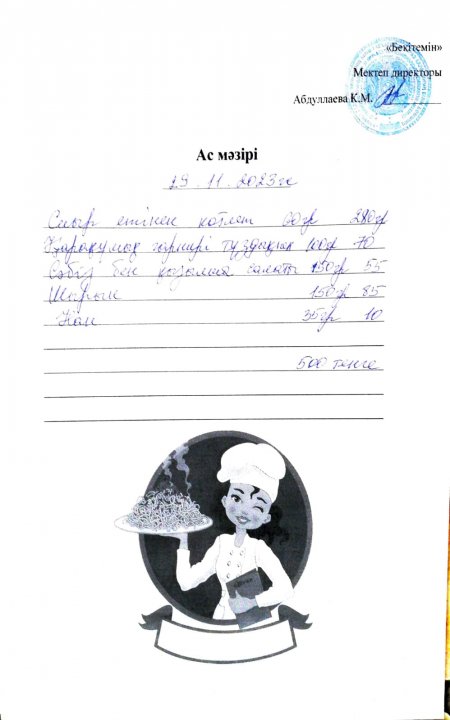 «Бекітемін»
Мектеп директоры
Абдуллаева К.М.
Ас мәзірі
29.11.2023ж
Сиыр етінен котлет 60гр 280гр
Қарақұмық гарнирі тұздық 100гр 70
Сәбіз бен қызылша салаты 150гр 55
Шырын 150гр 85
Нан 35гр 10
500 тенге